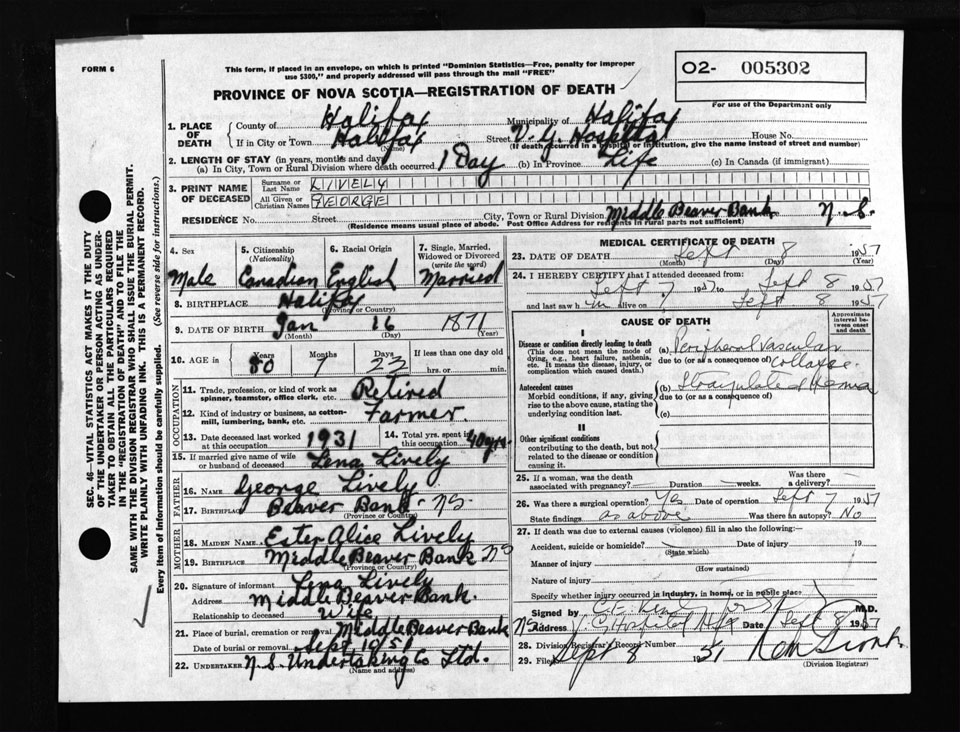 FORM 6
This form, if placed in an envelope, on which is printed "Dominion Statistics—Free, penalty for improper
use $300," and properly addressed will pass through the mail "FREE"
O2- 005302
For use of the Department only
PROVINCE OF NOVA SCOTIA—REGISTRATION OF DEATH
SEC. 46—VITAL STATISTICS ACT MAKES IT THE DUTY
OF THE UNDERTAKER OR PERSON ACTING AS UNDER-
TAKER TO OBTAIN ALL THE PARTICULARS REQUIRED
IN THE "REGISTRATION OF DEATH" AND TO FILE THE
SAME WITH THE DIVISION REGISTRAR WHO SHALL ISSUE THE BURIAL PERMIT.
WRITE PLAINLY WITH UNFADING INK. THIS IS A PERMANENT RECORD.
Every item of information should be carefully supplied. (See reverse side for instructions.)
1. PLACE OF DEATH
County of Halifax Municipality of Halifax
If in City or Town Halifax Street V. G. Hospital House No.
(Name) (If death occurred in a hospital or institution, give the name instead of street and number)
2. LENGTH OF STAY (in years, months and days)
(a) In City, Town or Rural Division where death occurred 1 Day (b) In Province Life (c) In Canada (if immigrant)
3. PRINT NAME OF DECEASED
Surname or Last Name LIVELY
All Given or Christian Names GEORGE
RESIDENCE No. Street City, Town or Rural Division Middle Beaver Bank N.S.
(Residence means usual place of abode. Post Office Address for residents in rural parts not sufficient)
4. Sex Male
5. Citizenship (Nationality) Canadian
6. Racial Origin English
7. Single, Married, Widowed or Divorced (write the word) Married
8. BIRTHPLACE Halifax
(Province or Country)
9. DATE OF BIRTH Jan 16 1871
(Month) (Day) (Year)
10. AGE in Years Months Days If less than one day old
80 7 23 hrs. or min.
OCCUPATION
11. Trade, profession, or kind of work as spinner, teamster, office clerk, etc. Retired
12. Kind of industry or business, as cotton-mill, lumbering, bank, etc. Farmer
13. Date deceased last worked at this occupation 1931
14. Total yrs. spent in this occupation 40 yrs.
15. If married give name of wife or husband of deceased Lena Lively
FATHER
16. NAME George Lively
17. BIRTHPLACE Beaver Bank NS
(Province or Country)
MOTHER
18. MAIDEN NAME Ester Alice Lively
19. BIRTHPLACE Middle Beaver Bank NS
(Province or Country)
20. Signature of informant Lena Lively
Address Middle Beaver Bank.
Relationship to deceased Wife
21. Place of burial, cremation or removal Middle Beaver Bank
Date of burial or removal Sept 10 51
22. UNDERTAKER N.S. Undertaking Co Ltd.
(Name and address)
MEDICAL CERTIFICATE OF DEATH
23. DATE OF DEATH Sept 8 1951
(Month) (Day) (Year)
24. I HEREBY CERTIFY that I attended deceased from:
Sept 7 1951 to Sept 8 1951
and last saw h im alive on Sept 8 1951
CAUSE OF DEATH
Approximate interval between onset and death
I
Disease or condition directly leading to death
(This does not mean the mode of dying, e.g., heart failure, asthenia, etc. It means the disease, injury, or complication which caused death.)
(a) Peripheral vascular collapse
due to (or as a consequence of)
Antecedent causes
Morbid conditions, if any, giving rise to the above cause, stating the underlying condition last.
(b) Strangulated Hernia
due to (or as a consequence of)
(c)
II
Other significant conditions
contributing to the death, but not related to the disease or condition causing it.
25. If a woman, was the death associated with pregnancy? Duration weeks. Was there a delivery?
26. Was there a surgical operation? Yes Date of operation Sept 7 1951
State findings as above Was there an autopsy? No
27. If death was due to external causes (violence) fill in also the following:—
Accident, suicide or homicide? Date of injury 19
(State which)
Manner of injury
(How sustained)
Nature of injury
Specify whether injury occurred in industry, in home, or in public place
Signed by M.D.
Address V G Hospital Hfx Date Sept 8 1951
28. Division Registrar's Record Number
29. Filed Sept 8 1951
(Division Registrar)